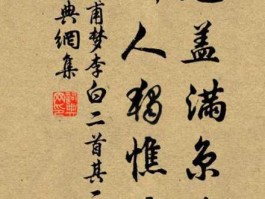 盖满京
人独憔
甫梦李白二首其二
典網集